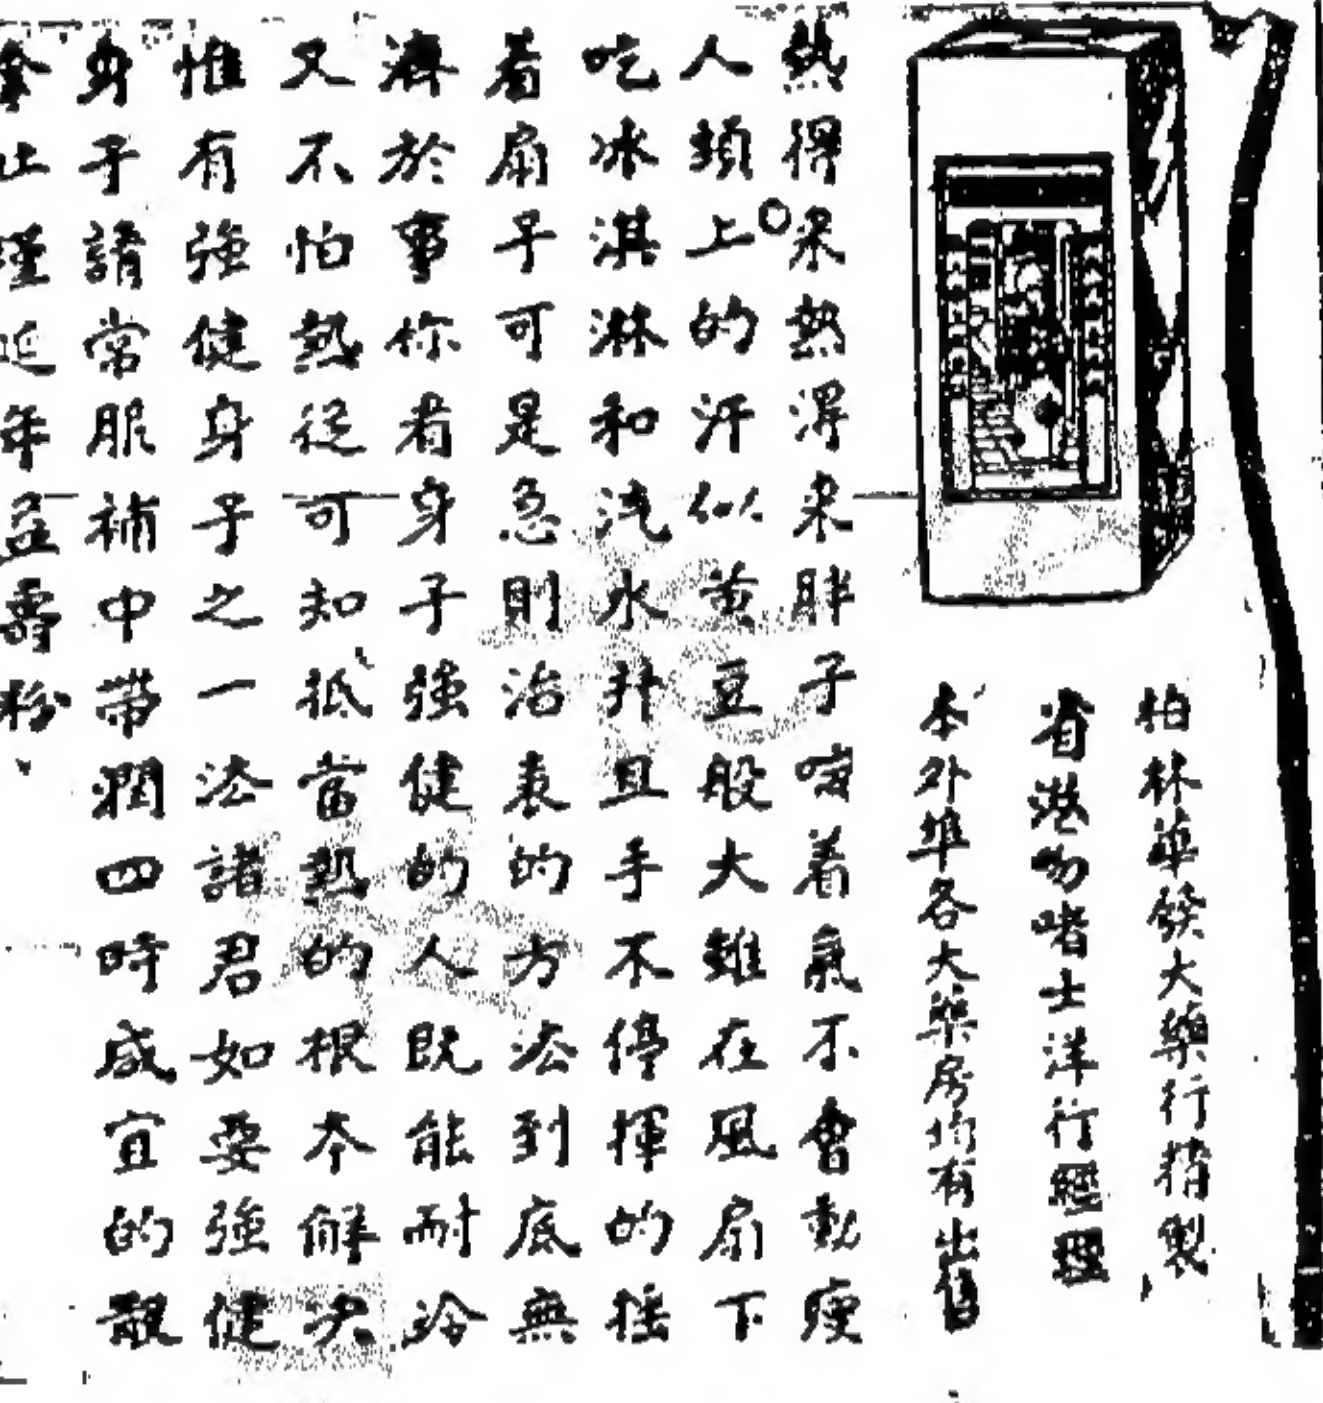 柏林華發大藥行精製
省港勿啫士洋行經理
本外埠各大藥房均有出售
熱得來熱得來胖子喘着氣不會動瘦
人頭上的汗似黃豆般大雖在風扇下
吃冰淇淋和汽水并且手不停揮的搖
着扇子可是急則治表的方法到底無
濟於事你看身子強健的人既能耐冷
又不怕熱從可知抵當熱的根本解決
惟有強健身子之一法諸君如要強健
身子請常服補中帶潤四時咸宜的散
拿吐瑾延年益壽粉、